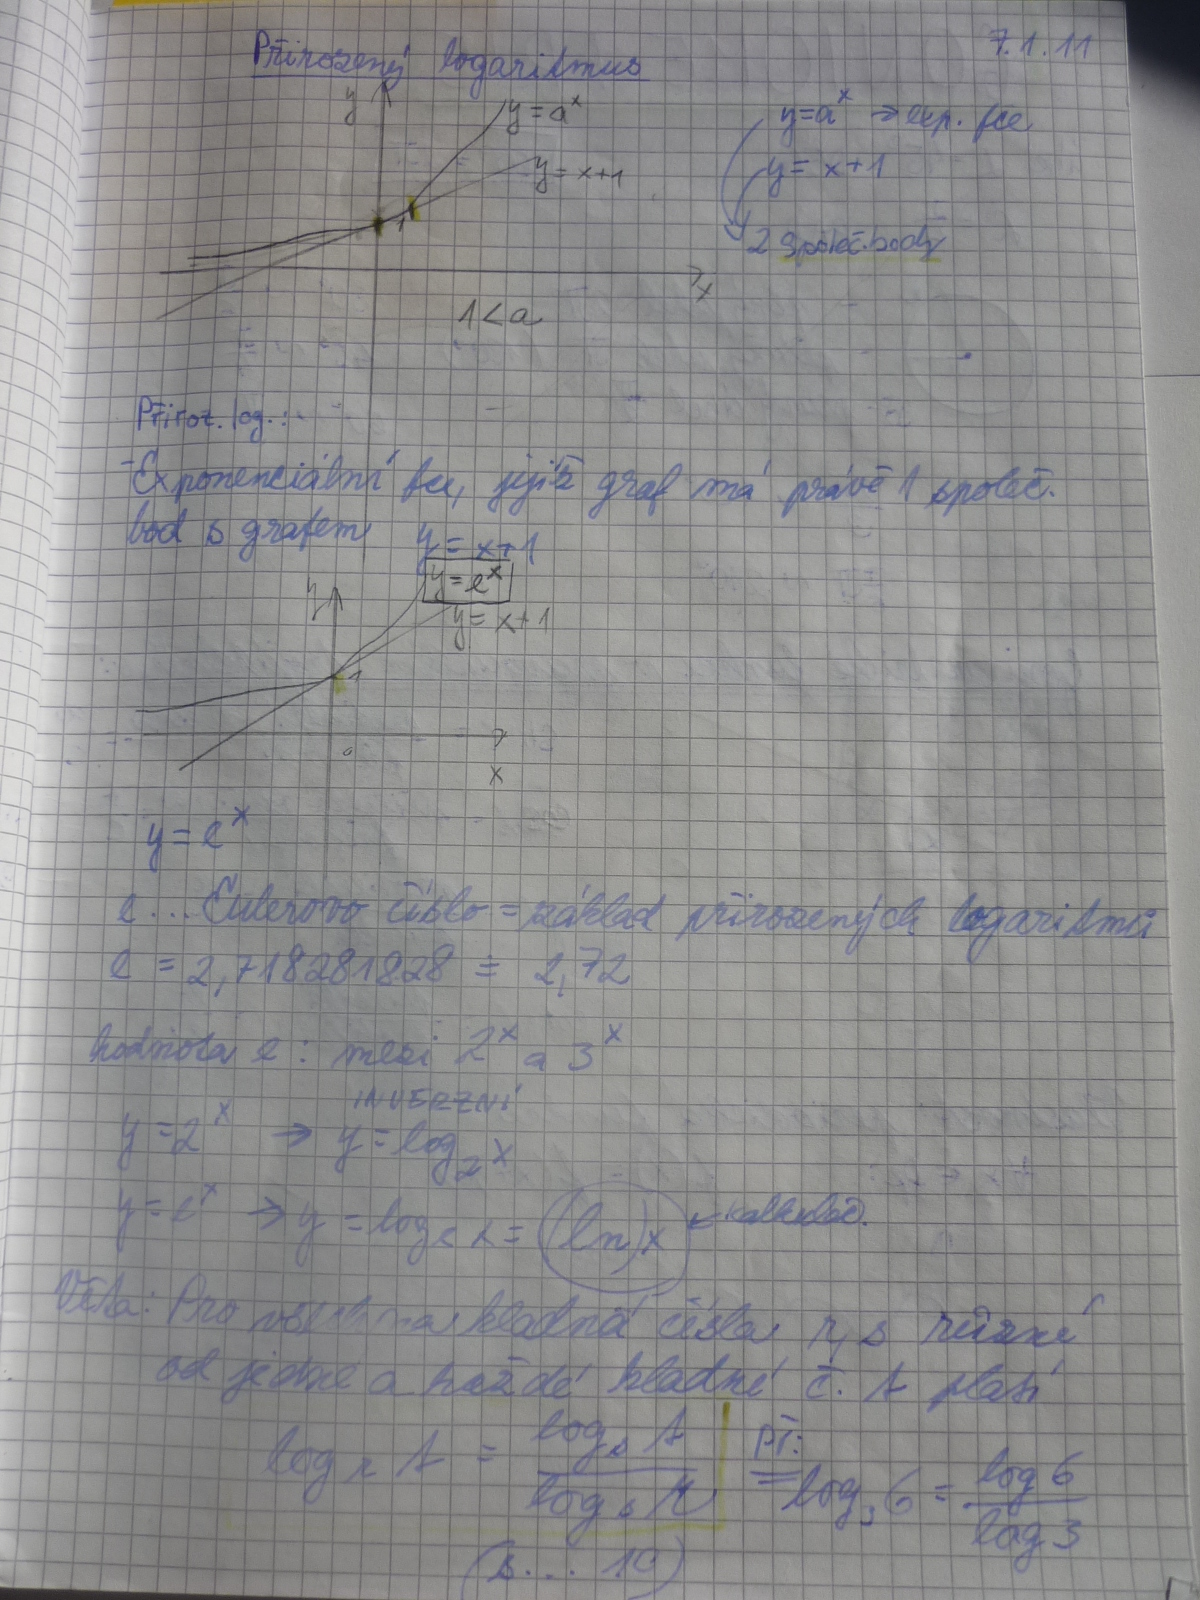 7.1.11
Přirozený logaritmus
y
y=a^x
y=x+1
1
x
1<a
y=a^x → exp. fce
y= x+1
2 společ. body
Přiroz. log.:
-Exponenciální fce, jejíž graf má právě 1 společ.
bod s grafem y= x+1
y
y=e^x
y= x+1
1
0
x
y=e^x
e... Eulerovo číslo=základ přirozených logaritmů
e = 2,718281828 = 2,72
hodnota e: mezi 2^x a 3^x
INVERZNÍ
y=2^x → y=log_2 x
y=e^x → y =log_e x= ln x ← kalkulač.
Věta: Pro všechna kladná čísla r, s různé
od jedné a každé kladné č. t platí
log_r t = log_s t / log_s r
Př: log_3 6 = log 6 / log 3
(s... 10)